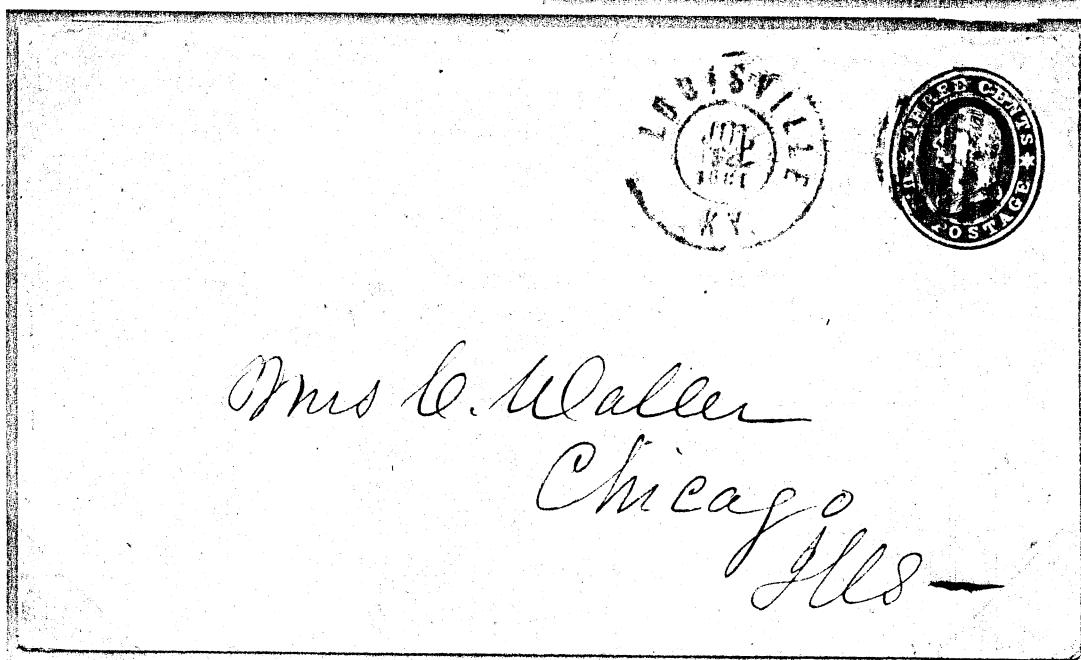 LOUISVILLE
KY.
THREE CENTS
U.S. POSTAGE
Mrs C. Waller
Chicago
Ills